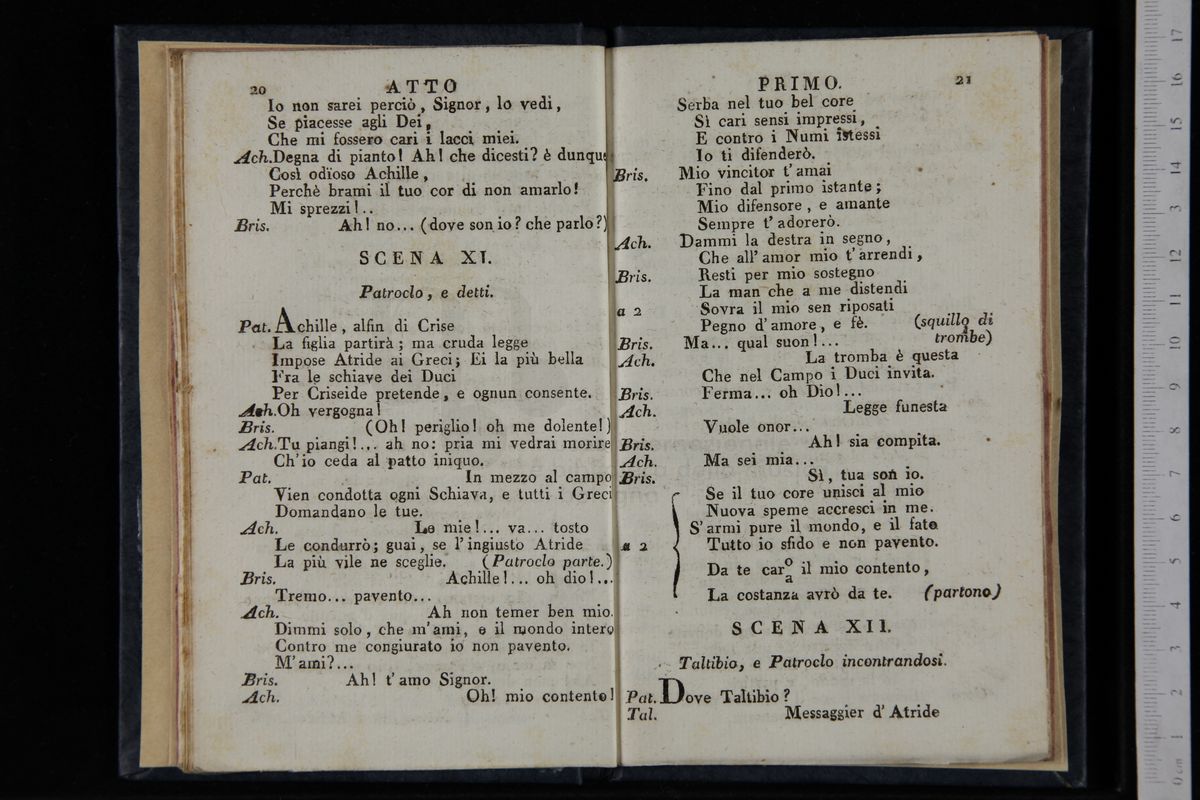 20 ATTO
Io non sarei perciò, Signor, lo vedi,
Se piacesse agli Dei,
Che mi fossero cari i lacci miei.
Ach. Degna di pianto! Ah! che dicesti? è dunque
Così odïoso Achille,
Perchè brami il tuo cor di non amarlo!
Mi sprezzi!..
Bris. Ah! no... (dove son io? che parlo?)
SCENA XI.
Patroclo, e detti.
Pat. Achille, alfin di Crise
La figlia partirà; ma cruda legge
Impose Atride ai Greci; Ei la più bella
Fra le schiave dei Duci
Per Criseide pretende, e ognun consente.
Ach. Oh vergogna!
Bris. (Oh! periglio! oh me dolente!)
Ach. Tu piangi!... ah no: pria mi vedrai morire
Ch'io ceda al patto iniquo.
Pat. In mezzo al campo
Vien condotta ogni Schiava, e tutti i Greci
Domandano le tue.
Ach. Le mie!... va... tosto
Le condurrò; guai, se l'ingiusto Atride
La più vile ne sceglie. (Patroclo parte.)
Bris. Achille!... oh dio!...
Tremo... pavento...
Ach. Ah non temer ben mio.
Dimmi solo, che m'ami, e il mondo intero
Contro me congiurato io non pavento.
M'ami?...
Bris. Ah! t'amo Signor.
Ach. Oh! mio contento!
PRIMO. 21
Serba nel tuo bel core
Sì cari sensi impressi,
E contro i Numi istessi
Io ti difenderò.
Bris. Mio vincitor t'amai
Fino dal primo istante;
Mio difensore, e amante
Sempre t'adorerò.
Ach. Dammi la destra in segno,
Che all'amor mio t'arrendi,
Bris. Resti per mio sostegno
La man che a me distendi
a 2 Sovra il mio sen riposati
Pegno d'amore, e fè. (squillo di
trombe)
Bris. Ma... qual suon!...
Ach. La tromba è questa
Che nel Campo i Duci invita.
Bris. Ferma... oh Dio!...
Ach. Legge funesta
Vuole onor...
Bris. Ah! sia compita.
Ach. Ma sei mia...
Bris. Sì, tua son io.
Se il tuo core unisci al mio
Nuova speme accresci in me.
S'armi pure il mondo, e il fato
a 2 Tutto io sfido e non pavento.
Da te caro/a il mio contento,
La costanza avrò da te. (partono)
SCENA XII.
Taltibio, e Patroclo incontrandosi.
Pat. Dove Taltibio?
Tal. Messaggier d'Atride
0 cm 1 2 3 4 5 6 7 8 9 10 11 12 13 14 15 16 17